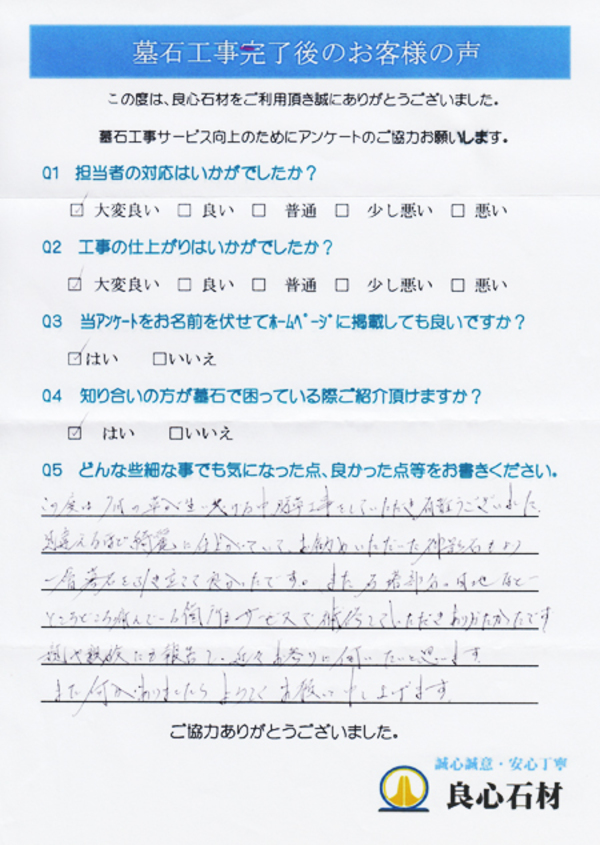 墓石工事完了後のお客様の声
この度は、良心石材をご利用頂き誠にありがとうございました。
墓石工事サービス向上のためにアンケートのご協力お願いします。
Q1 担当者の対応はいかがでしたか？
☑ 大変良い □ 良い □ 普通 □ 少し悪い □ 悪い
Q2 工事の仕上がりはいかがでしたか？
☑ 大変良い □ 良い □ 普通 □ 少し悪い □ 悪い
Q3 当ｱﾝｹｰﾄをお名前を伏せてﾎｰﾑﾍﾟｰｼﾞに掲載しても良いですか？
☑はい □いいえ
Q4 知り合いの方が墓石で困っている際ご紹介頂けますか？
☑ はい □いいえ
Q5 どんな些細な事でも気になった点、良かった点等をお書きください。
この度は 工事をしていただき有難うございました。
見違えるほど綺麗に仕上がっていて、お納めいただいた
一層墓石を引き立てて良かったです。また
ところどころ サービスで していただきありがたかったです
親や親族にも報告し、近々お参りに伺いたいと思います。
また何かありましたらよろしくお願い申し上げます。
ご協力ありがとうございました。
誠心誠意・安心丁寧
良心石材